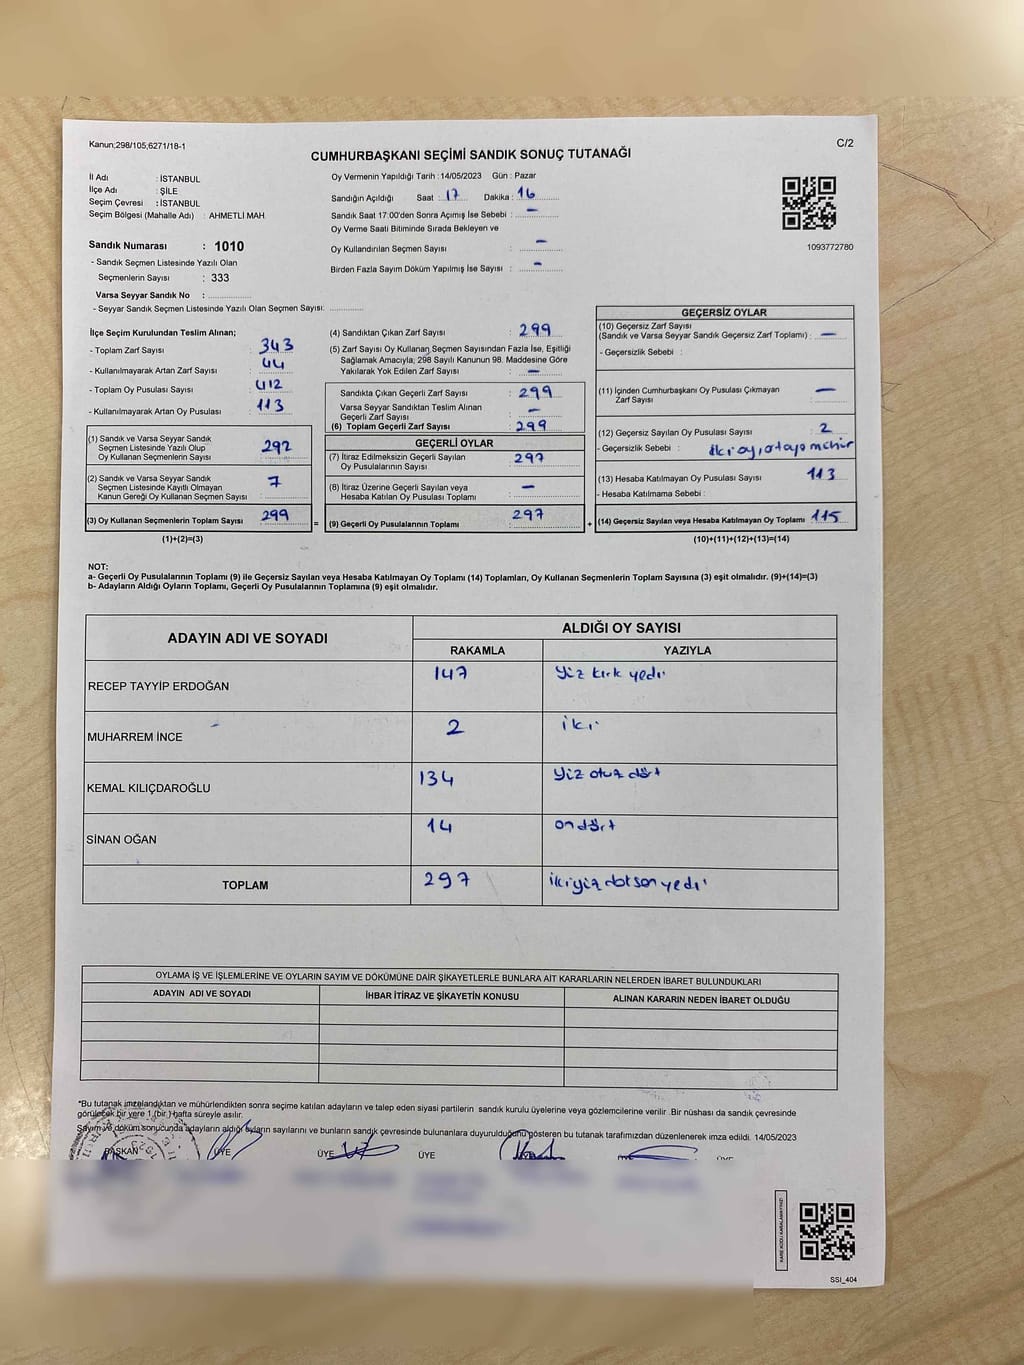 Kanun;298/105,6271/18-1
C/2
CUMHURBAŞKANI SEÇİMİ SANDIK SONUÇ TUTANAĞI
İl Adı : İSTANBUL
İlçe Adı : ŞİLE
Seçim Çevresi : İSTANBUL
Seçim Bölgesi (Mahalle Adı) : AHMETLİ MAH.
Sandık Numarası : 1010
- Sandık Seçmen Listesinde Yazılı Olan
Seçmenlerin Sayısı : 333
Varsa Seyyar Sandık No :
- Seyyar Sandık Seçmen Listesinde Yazılı Olan Seçmen Sayısı:
Oy Vermenin Yapıldığı Tarih :14/05/2023 Gün : Pazar
Sandığın Açıldığı Saat : 17 Dakika : 16
Sandık Saat 17:00'den Sonra Açımış İse Sebebi : -
Oy Verme Saati Bitiminde Sırada Bekleyen ve
Oy Kullandırılan Seçmen Sayısı : -
Birden Fazla Sayım Döküm Yapılmış İse Sayısı : -
1093772780
İlçe Seçim Kurulundan Teslim Alınan;
- Toplam Zarf Sayısı : 343
- Kullanılmayarak Artan Zarf Sayısı : 44
- Toplam Oy Pusulası Sayısı : 412
- Kullanılmayarak Artan Oy Pusulası : 113
(1) Sandık ve Varsa Seyyar Sandık
Seçmen Listesinde Yazılı Olup
Oy Kullanan Seçmenlerin Sayısı : 292
(2) Sandık ve Varsa Seyyar Sandık
Seçmen Listesinde Kayıtlı Olmayan
Kanun Gereği Oy Kullanan Seçmen Sayısı : 7
(3) Oy Kullanan Seçmenlerin Toplam Sayısı : 299
(1)+(2)=(3)
(4) Sandıktan Çıkan Zarf Sayısı : 299
(5) Zarf Sayısı Oy Kullanan Seçmen Sayısından Fazla İse, Eşitliği
Sağlamak Amacıyla, 298 Sayılı Kanunun 98. Maddesine Göre
Yakılarak Yok Edilen Zarf Sayısı : -
Sandıkta Çıkan Geçerli Zarf Sayısı : 299
Varsa Seyyar Sandıktan Teslim Alınan
Geçerli Zarf Sayısı : -
(6) Toplam Geçerli Zarf Sayısı : 299
GEÇERLİ OYLAR
(7) İtiraz Edilmeksizin Geçerli Sayılan
Oy Pusulalarının Sayısı : 297
(8) İtiraz Üzerine Geçerli Sayılan veya
Hesaba Katılan Oy Pusulası Toplamı : -
= (9) Geçerli Oy Pusulalarının Toplamı : 297
GEÇERSİZ OYLAR
(10) Geçersiz Zarf Sayısı
(Sandık ve Varsa Seyyar Sandık Geçersiz Zarf Toplamı) : -
- Geçersizlik Sebebi :
(11) İçinden Cumhurbaşkanı Oy Pusulası Çıkmayan
Zarf Sayısı : -
(12) Geçersiz Sayılan Oy Pusulası Sayısı : 2
- Geçersizlik Sebebi : iki oy, ortaya mühür
(13) Hesaba Katılmayan Oy Pusulası Sayısı : 113
- Hesaba Katılmama Sebebi :
+ (14) Geçersiz Sayılan veya Hesaba Katılmayan Oy Toplamı : 115
(10)+(11)+(12)+(13)=(14)
NOT:
a- Geçerli Oy Pusulalarının Toplamı (9) ile Geçersiz Sayılan veya Hesaba Katılmayan Oy Toplamı (14) Toplamları, Oy Kullanan Seçmenlerin Toplam Sayısına (3) eşit olmalıdır. (9)+(14)=(3)
b- Adayların Aldığı Oyların Toplamı, Geçerli Oy Pusulalarının Toplamına (9) eşit olmalıdır.
ADAYIN ADI VE SOYADI
ALDIĞI OY SAYISI
RAKAMLA YAZIYLA
RECEP TAYYİP ERDOĞAN 147 Yüz kırk yedi
MUHARREM İNCE 2 iki
KEMAL KILIÇDAROĞLU 134 Yüz otuz dört
SİNAN OĞAN 14 on dört
TOPLAM 297 ikiyüz doksan yedi
OYLAMA İŞ VE İŞLEMLERİNE VE OYLARIN SAYIM VE DÖKÜMÜNE DAİR ŞİKAYETLERLE BUNLARA AİT KARARLARIN NELERDEN İBARET BULUNDUKLARI
ADAYIN ADI VE SOYADI İHBAR İTİRAZ VE ŞİKAYETİN KONUSU ALINAN KARARIN NEDEN İBARET OLDUĞU
*Bu tutanak imzalandıktan ve mühürlendikten sonra seçime katılan adayların ve talep eden siyasi partilerin sandık kurulu üyelerine veya gözlemcilerine verilir. Bir nüshası da sandık çevresinde
görülecek bir yere 1 (bir) hafta süreyle asılır.
Sayım ve döküm sonucunda adayların aldığı oyların sayılarını ve bunların sandık çevresinde bulunanlara duyurulduğunu gösteren bu tutanak tarafımızdan düzenlenerek imza edildi. 14/05/2023
BAŞKAN ÜYE ÜYE ÜYE
SSİ_404